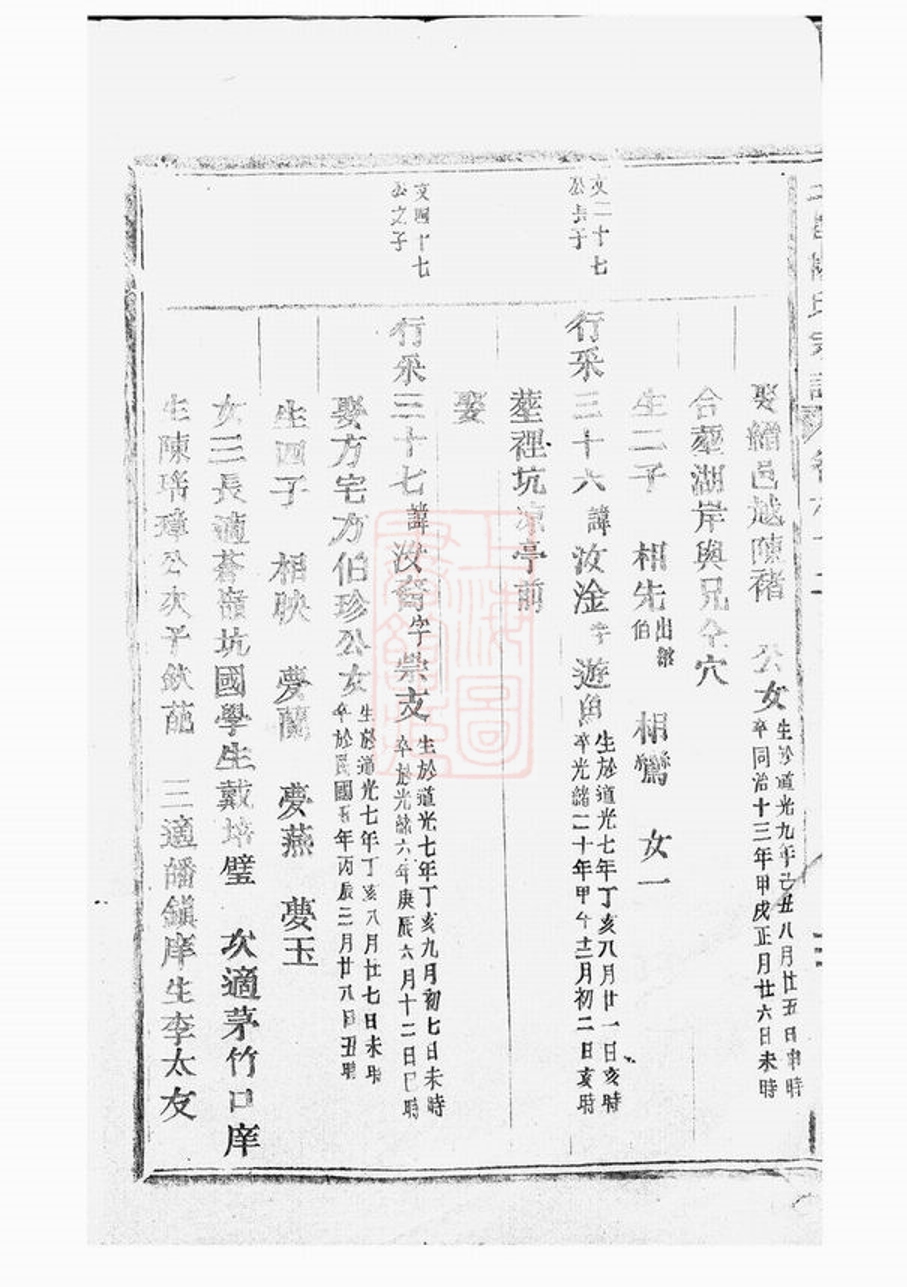 娶縉邑越陳褚 公女 生於道光九年己丑八月廿五日申時
卒同治十三年甲戌正月廿六日未時
合塟湖岸與兄仝穴
生二子 相先 出紹伯 相鸞 女一
文二十七公長子
行采三十六 諱 汝淦 字 遊魚 生於道光七年丁亥八月廿一日亥時
卒光緒二十年甲午十二月初二日亥時
塟裡坑凉亭前
娶
文四十七公之子
行采三十七 諱 汝裔 字 崇支 生於道光七年丁亥九月初七日未時
卒於光緒六年庚辰六月十二日巳時
娶方宅方伯珍公女 生於道光七年丁亥八月廿七日未時
卒於民國五年丙辰三月廿八日丑時
生四子 相映 夢蘭 夢燕 夢玉
女三長適蒼嶺坑國學生戴培璧 次適茅竹口庠
生陳瑞璋公次子欽葩 三適皤鎮庠生李太友